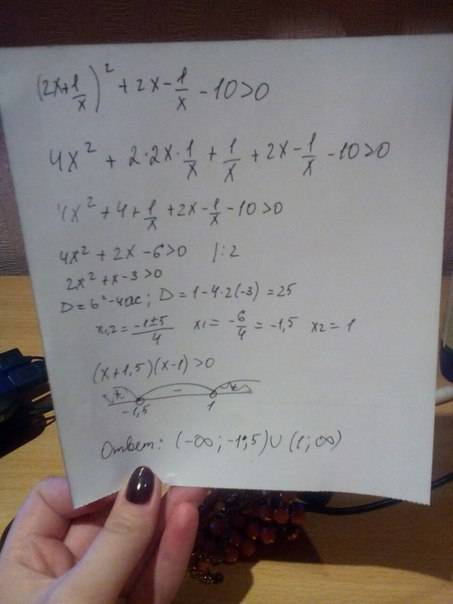 (2x+1/x)² + 2x - 1/x - 10>0
4x² + 2·2x·1/x + 1/x + 2x - 1/x - 10>0
4x² + 4 + 1/x + 2x - 1/x - 10>0
4x² + 2x - 6>0 |:2
2x² + x - 3>0
D = b² - 4ac; D = 1 - 4·2(-3) = 25
x₁,₂ = -1±5/4 x₁ = -6/4 = -1,5 x₂ = 1
(x+1,5)(x-1)>0
+ - +
-1,5 1
Ответ: (-∞; -1,5)∪(1; ∞)